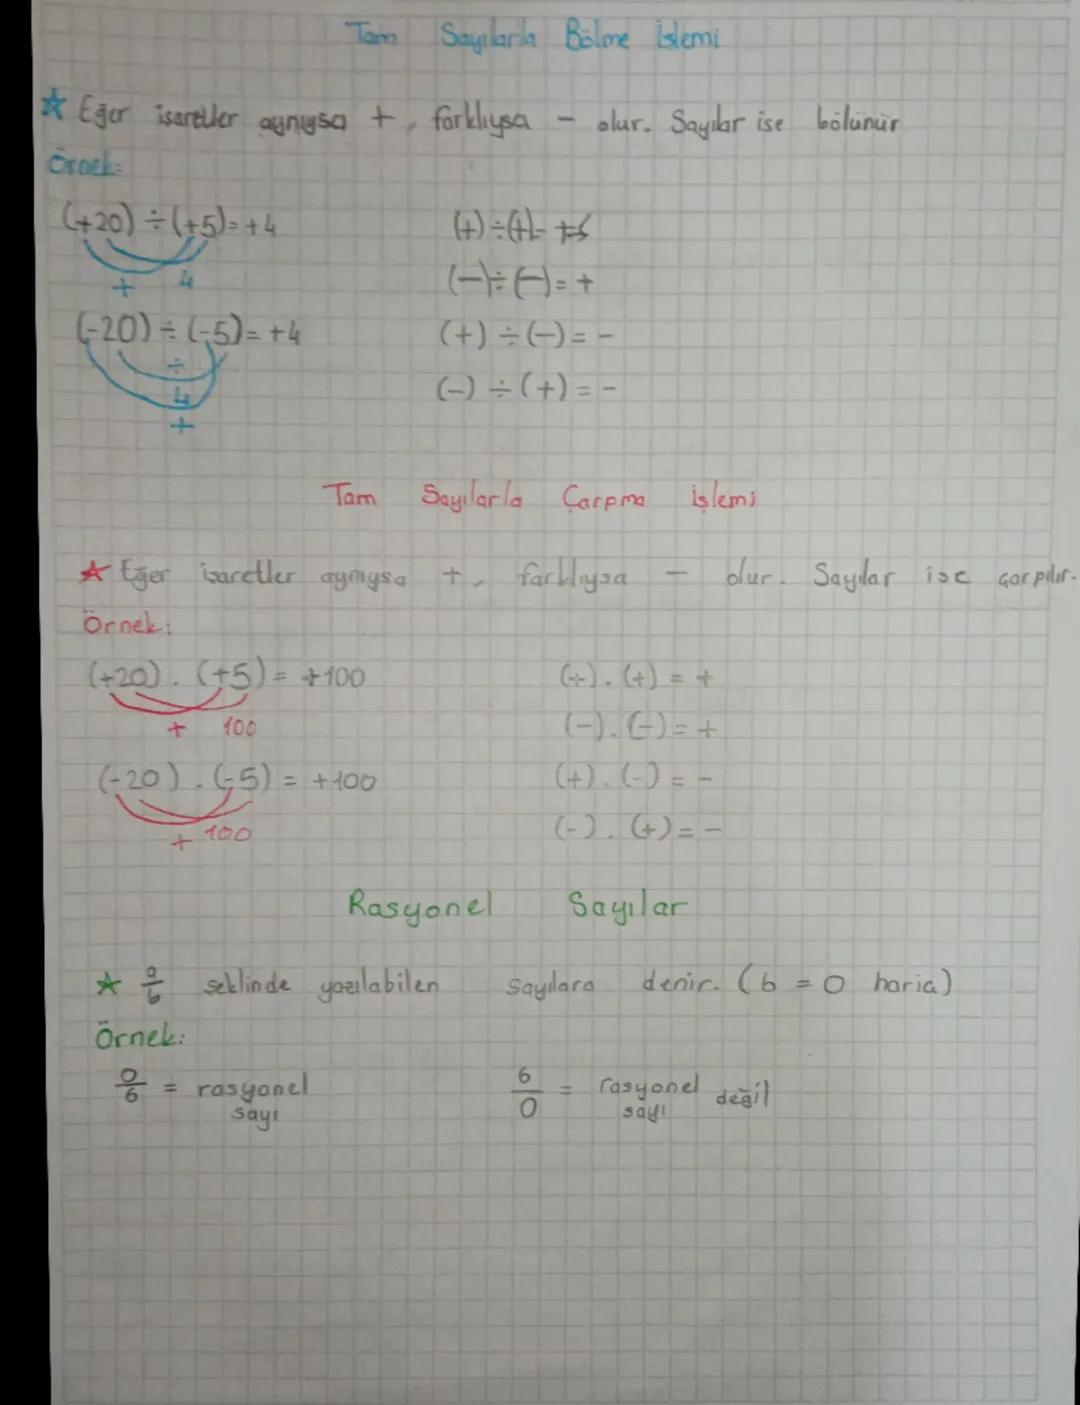 Tam Sayılarla Bölme İşlemi
☆ Eğer isaretler aynıysa +, farklıysa - olur. Sayılar ise bölünür
Örnek:
(+20) ÷ (+5) = +4
+ 4
(+) ÷ (+) = +
(-) ÷ (-) = +
(-20) ÷ (-5) = +4
÷
4
+
(+) ÷ (-) = -
(-) ÷ (+) = -
Tam Sayılarla Çarpma işlemi
☆ Eğer isaretler aynıysa +, farklıysa - olur. Sayılar ise çarpılır.
Örnek:
(+20) . (+5) = +100
+ 100
(+) . (+) = +
(-) . (-) = +
(-20) . (-5) = +100
+ 100
(+) . (-) = -
(-) . (+) = -
Rasyonel Sayılar
☆ a/b seklinde yazılabilen sayılara denir. (b = 0 hariç)
Örnek:
0/6 = rasyonel sayı
6/0 = rasyonel sayı değil